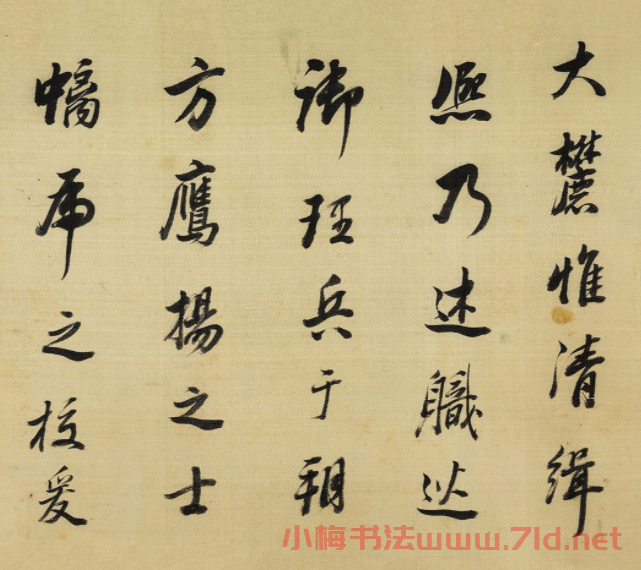 大麓惟清緝
熙乃述職巡
御理兵于朔
方鷹揚之士
螭虎之校爰
小梅书法www.7ld.net